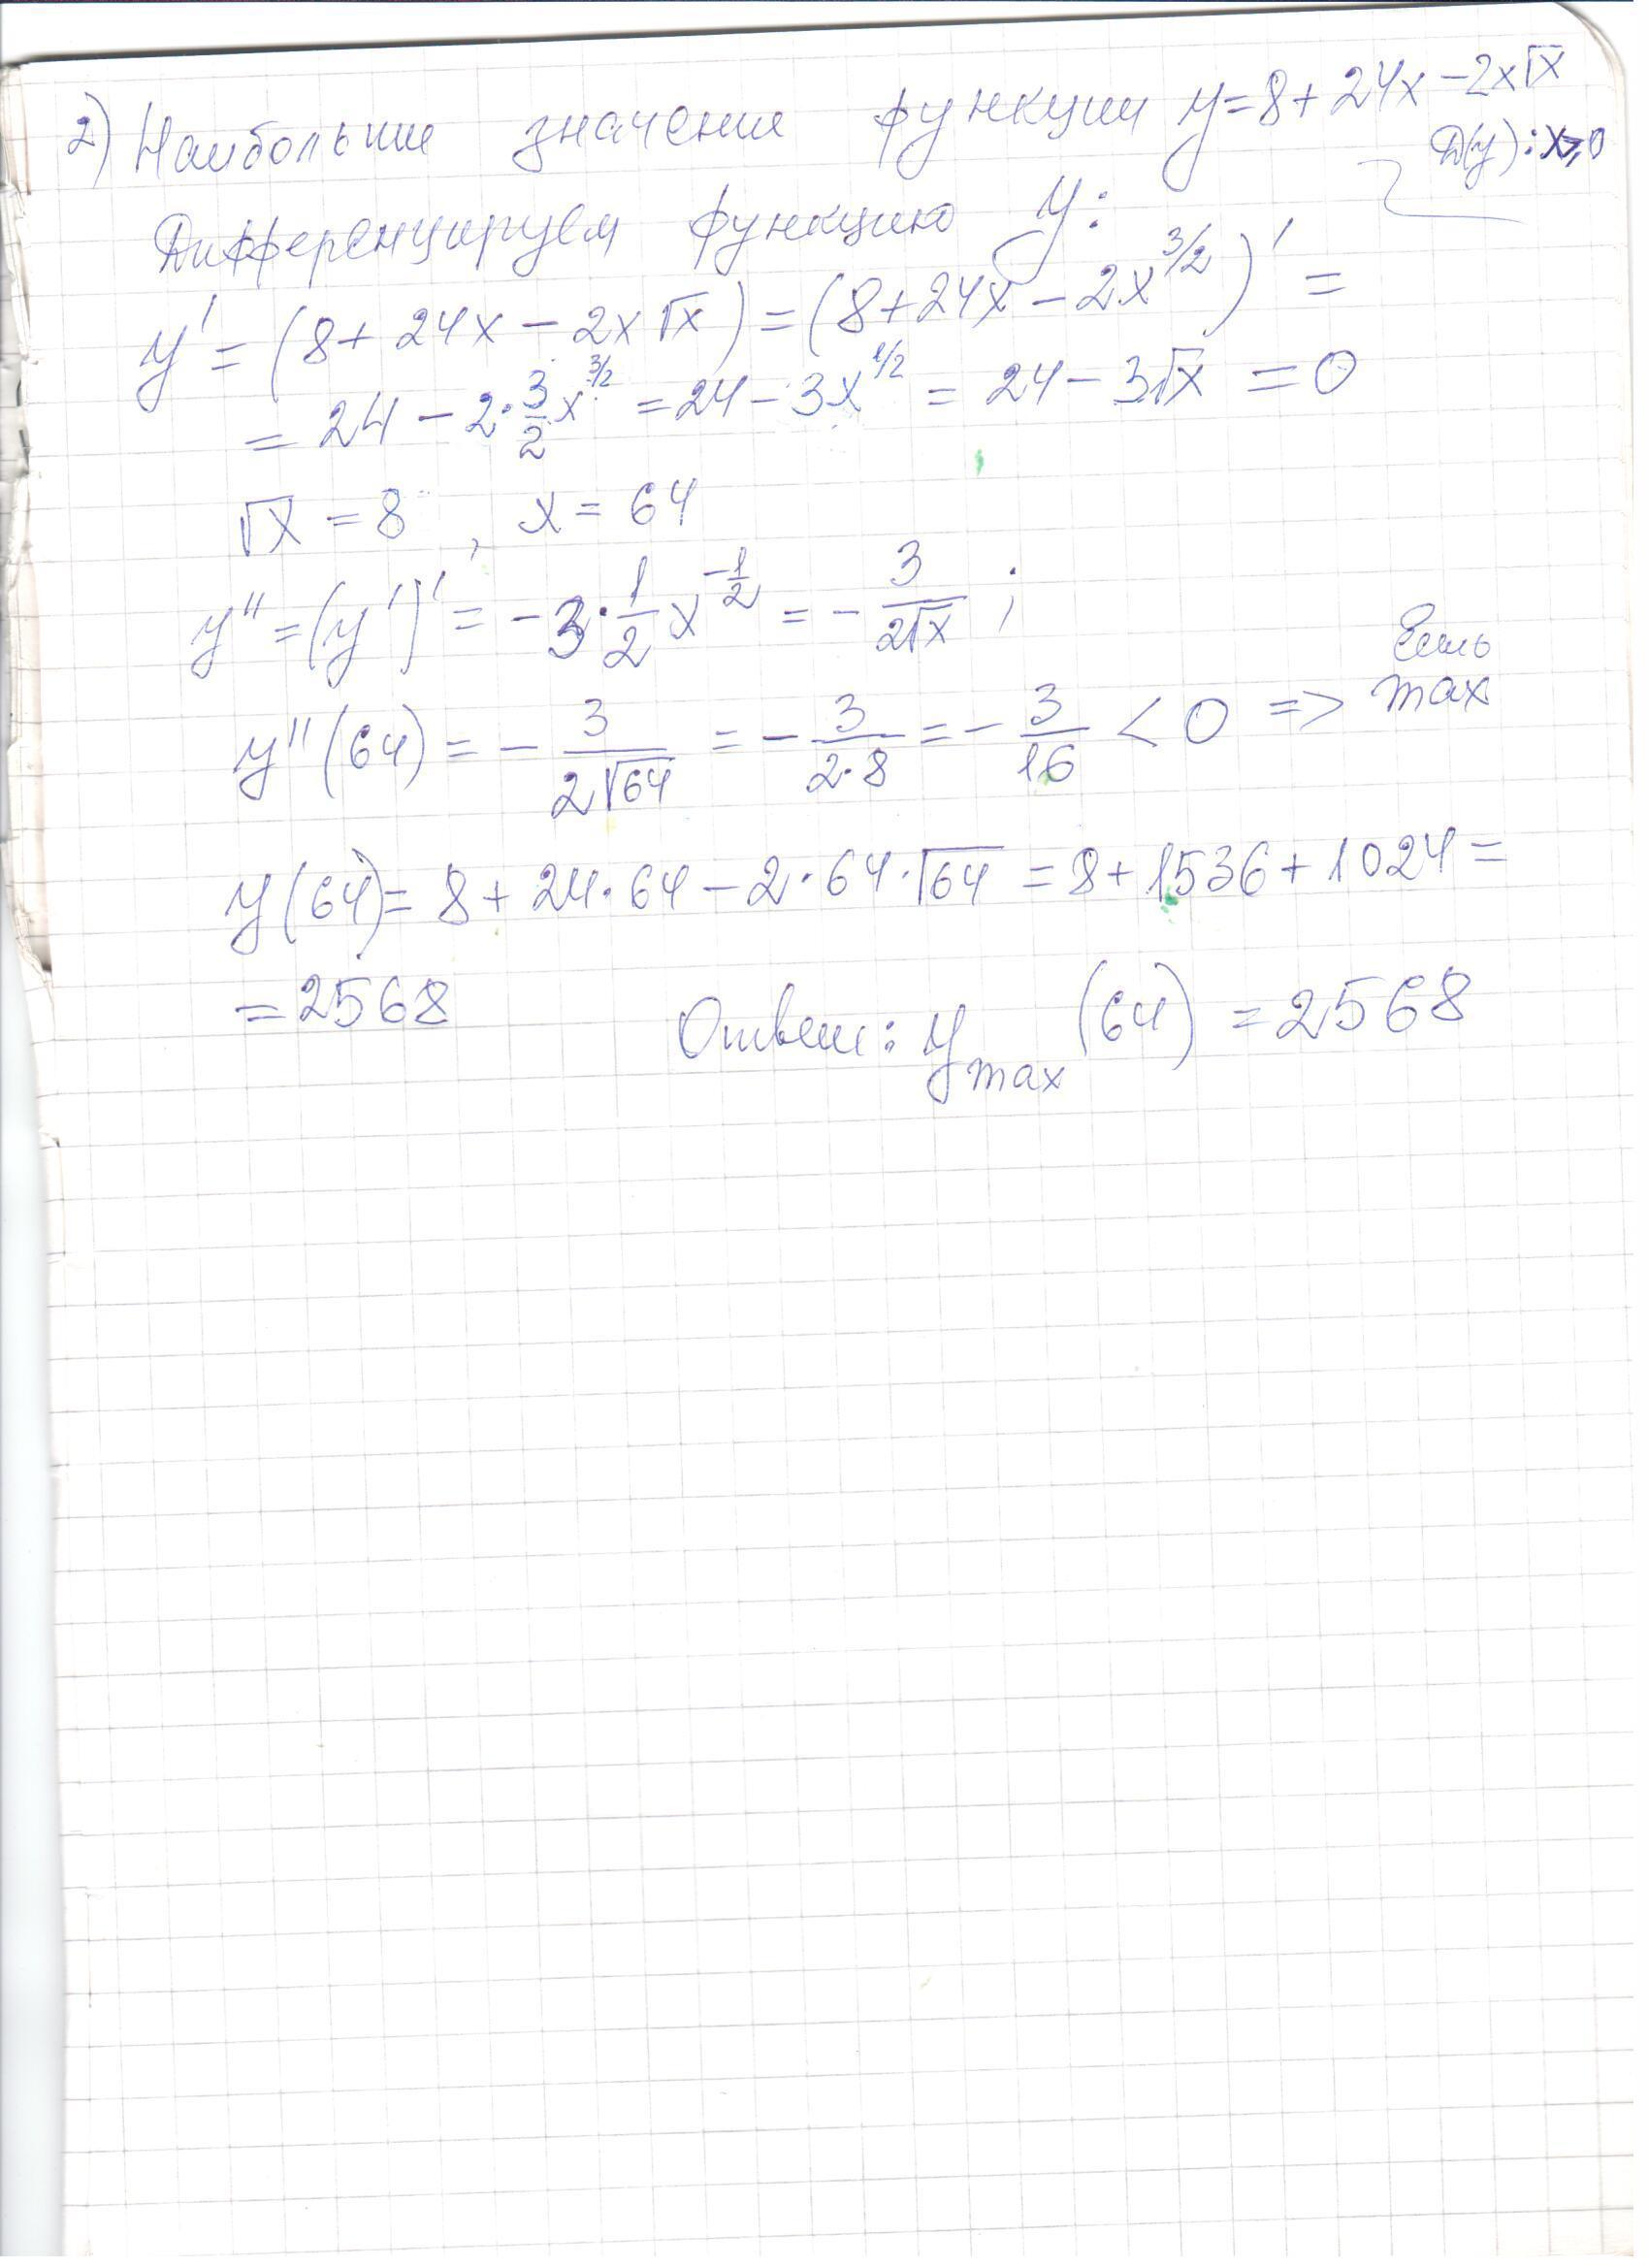 2) Наибольшие значение функции y=8+24x-2x√x
D(y): x≥0
Дифференцируем функцию y:
y' = (8+24x-2x√x) = (8+24x-2x^3/2)' =
= 24 - 2·3/2 x^3/2 = 24-3x^1/2 = 24-3√x = 0
√x = 8 , x = 64
y'' = (y')' = -3·1/2 x^-1/2 = - 3/2√x ;
y''(64) = - 3/2√64 = - 3/2·8 = - 3/16 < 0 => Есть max
y(64) = 8+24·64-2·64·√64 = 8+1536+1024 =
= 2568 Ответ: y max (64) = 2568